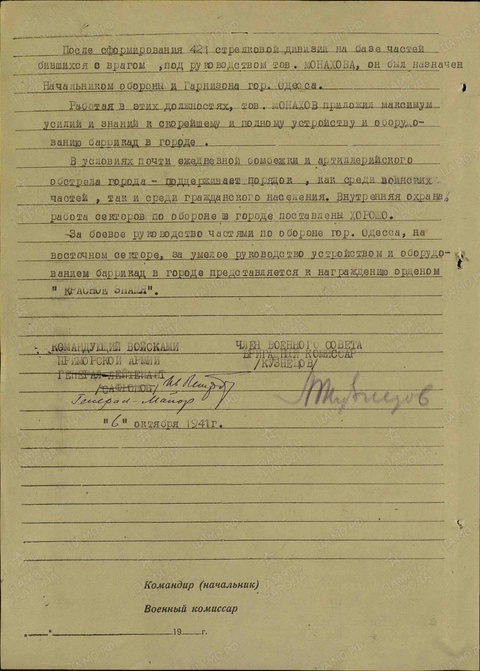 После сформирования 421 стрелковой дивизии на базе частей
бившихся с врагом ,под руководством тов. МОНАХОВА, он был назначен
Начальником обороны и Гарнизона гор. Одесса.
Работая в этих должностях, тов. МОНАХОВ приложил максимум
усилий и знаний к скорейшему и полному устройству и оборудо-
ванию баррикад в городе .
В условиях почти ежедневной бомбежки и артиллерийского
обстрела города - поддерживает порядок , как среди воинских
частей , так и среди гражданского населения. Внутренняя охрана,
работа секторов по обороне в городе поставлены ХОРОШО.
-За боевое руководство частями по обороне гор. Одесса, на
восточном секторе, за умелое руководство устройством и оборудо-
ванием баррикад в городе представляется к награждению орденом
" КРАСНОЕ ЗНАМЯ".
КОМАНДУЮЩИЙ ВОЙСКАМИ
ПРИМОРСКОЙ АРМИИ
ГЕНЕРАЛ-ЛЕЙТЕНАНТ
/САФРОНОВ/
Генерал-Майор
ЧЛЕН ВОЕННОГО СОВЕТА
БРИГАДНЫЙ КОМИССАР
/КУЗНЕЦОВ/
Кузнецов
"6" октября 1941г.
Командир (начальник)
Военный комиссар
„ “ 19 г.